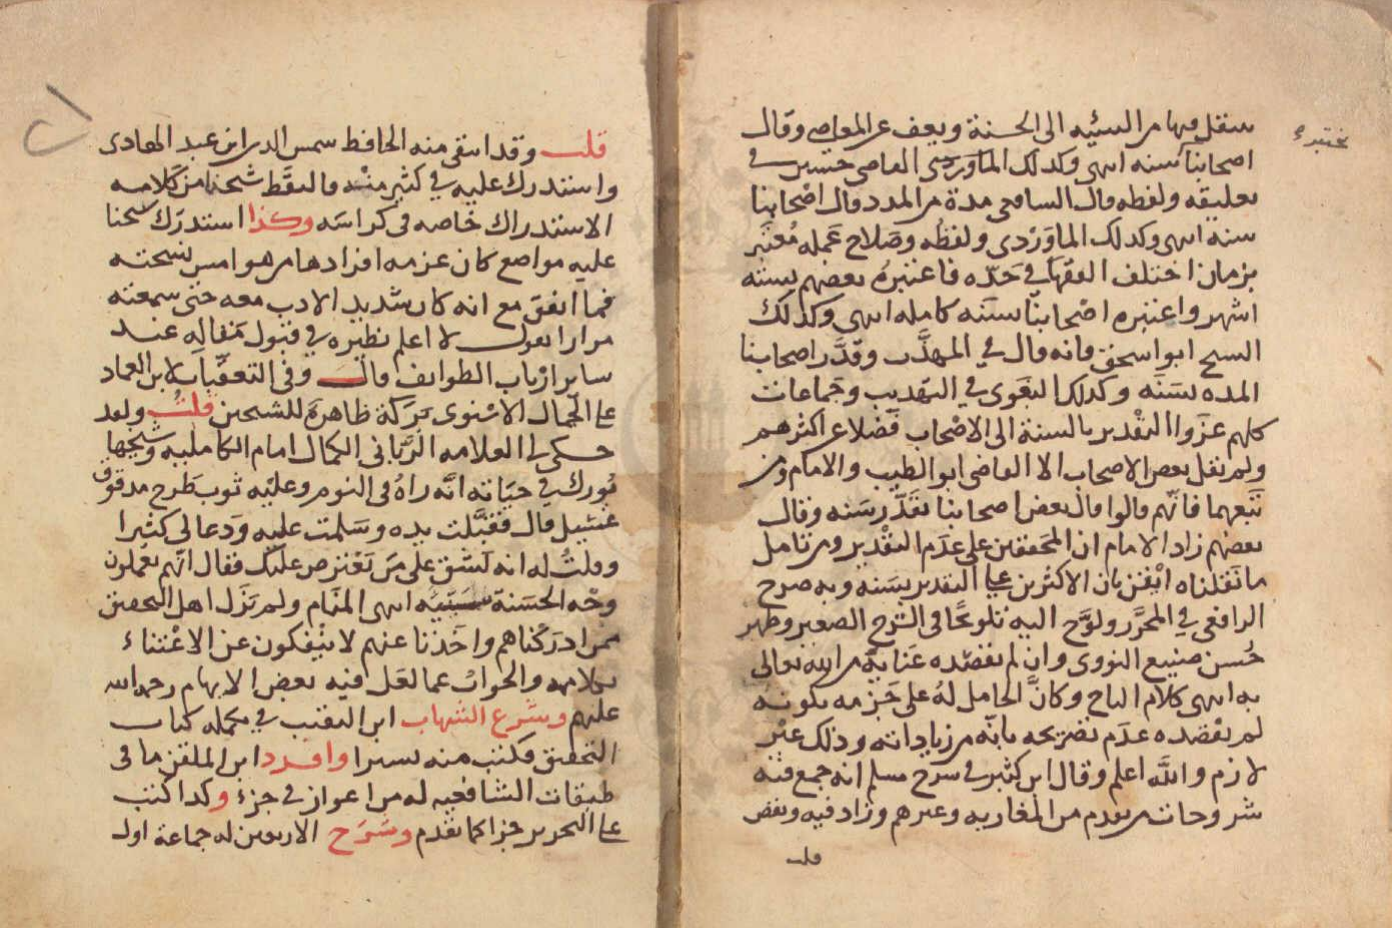 ينتقل فيها من السيئه الى الحسنة ويعف عن المعاصي وقال
اصحابنا سنه انتهى وكذلك الماوردى القاضى حسين في
تعليقه ولفظه قال الشافعى مدة من المدد قال اصحابنا
سنه انتهى وكذلك الماوَرْدى ولفظه وصَلاح عَمله مُعتَبر
بزمان اختلف الفقهآ في حَدّه فاعتبرهُ بعضهم بستة
اشهر واعتبره اصحابنا بسَنَه كامله انتهى وكذلك
الشيخ ابو اسحق فانه قال في المهذَّب وقدَّر اصحابنا
المده بسَنَه وكذلك البغَوى في التهذيب وجماعات
كلهم عزَوا التقْدير بالسنة الى الاصْحاب فَضْلا عن اكثرهم
ولم ينقل بعض الاصحاب الا القاضى ابو الطيب والامام ومن
تَبعهما فانّهم قالوا قال بعض اصحابنا يقَدّر بسَنه وقال
بعضهم زاد الامام ان المحَققين على عدَم التقْدير ومن تامل
ما نَقَلناه ايْقَن بان الاكثرين على التقدير بسَنه وبه صرح
الرافعى في المحَرَّر ولوَّح اليه تلويحًا فى الشرح الصغير وظهر
حُسن صنيع النووى وان لم يقصّده عنَاية من الله تعالى
به انتهى كلام التاج وكانَّ الحَامل لهُ على جَزمه بكونه
لم يقْصده عدَم تصْريحه بانّه من زياداته وذلك غيْر
لازم والله اعلم وقال ابن كثير في شرح مسلم انه جمع فيه
شروحات من تقدم من المغاربه وغيرهم وزاد فيه ونقص
قلت
قلت وقد انتقى منه الحافظ شمس الدين ابن عبد الهادى
واستدرك عليه في كثير منْه والتقَط شيخنا من كلامه
الاستدراك خاصه فى كراسَه وكذا استدرَك شيخنا
عليه مواضع كان عزمه افرادها من هوامس نسخته
فما اتفق مع انه كان شديد الادب معه حتى سمعته
مرارا يقول لا اعلم نظيره في قبول مَقاله عند
ساير ارباب الطوايف قالــ وفى التعقّبات لابن العماد
على الجمال الاسْنوى بَركة ظاهرَة للشيخين قلتُ ولقد
حكى لى العلامه الربّانى الكمال امام الكامليه وشيخها
بُورك في حيَاته انّه راهُ فى النوم وعليه ثوب طَرح مدقوق
غَسيل قال فقبَّلت يده وسَلمت عليه ودَعا لى كثيرا
وقلتُ له انه لَيشق على مَن يعْترض عليك فقال انّهم يعْملون
وجْه الحَسَنة انتهى المنَام ولم يَزَل اهل التحقيق
ممن ادرَكْناهم واخَذنا عنهم لا ينْفكون عن الاعْتناء
بكلامه والجوابْ عما لعَل فيه بعض الايهام رحمه الله
عليهم وشَرع الشهاب ابن النقيب في تكمله كتاب
التحقيق فكتب منه يسيرا وافرد ابن الملقن ما فى
طبقات الشافعيه له من اعواز في جزء وكذا كتب
على التحرير جزا كما تقدم وشَرَح الاربعين له جماعة اولـ